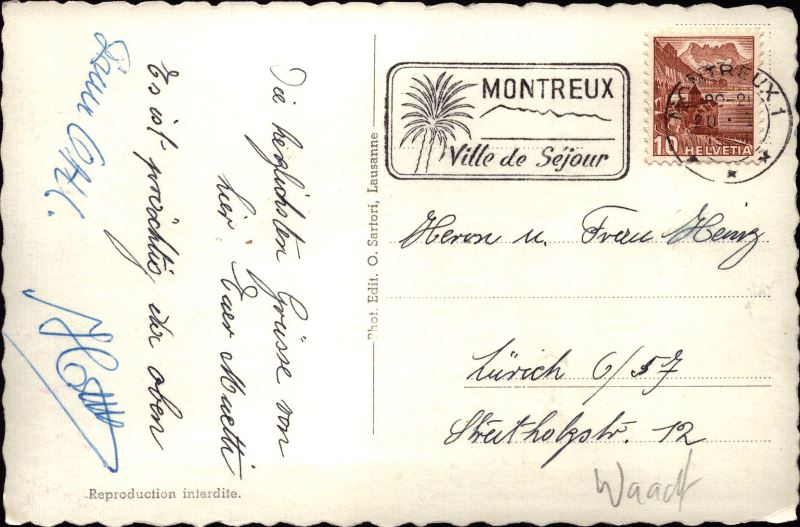 Die herzlichsten Grüsse von
hier. Euer Muetti
Es ist prächtig hir oben
MONTREUX
Ville de Séjour
MONTREUX 1
10 HELVETIA
Herrn u. Frau Heinz
Zürich 6/57
Streitholzstr. 12
Waadt
Phot. Edit. O. Sartori, Lausanne
Reproduction interdite.